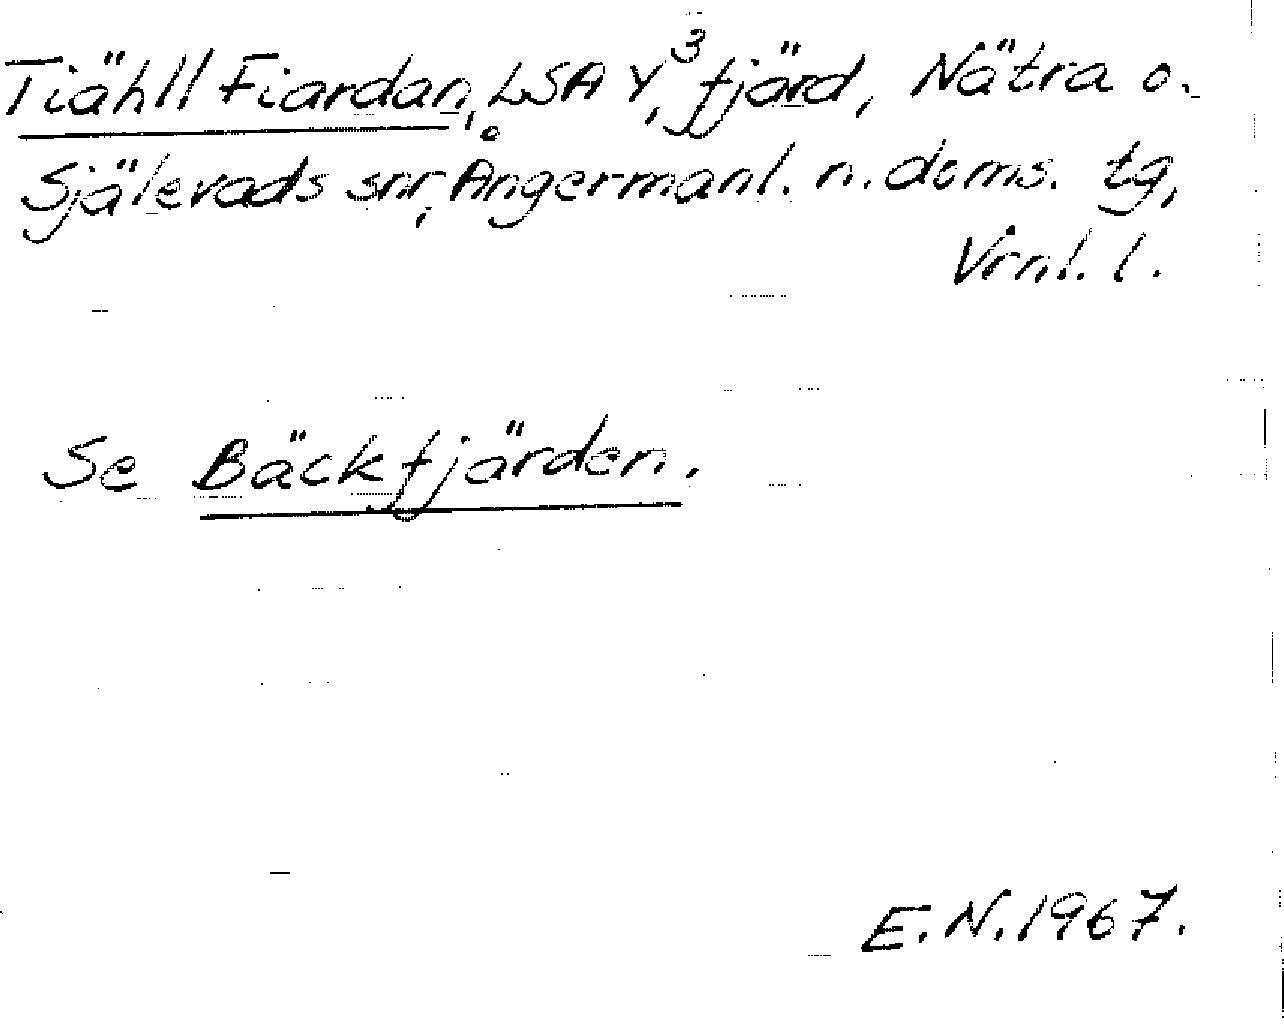 Tiähll Fiardan, LSA Y³, fjärd, Nätra o.
Själevads snr, Ångermanl. n. doms. tg,
Vrnl. l.
Se Bäckfjärden.
E.N. 1967.